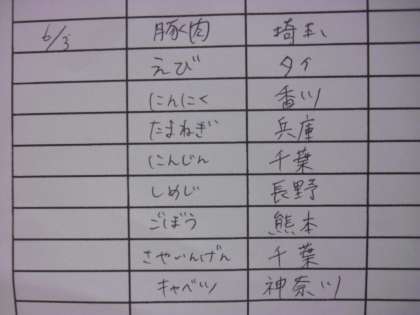 6/3 豚肉 埼玉
えび タイ
にんにく 香川
たまねぎ 兵庫
にんじん 千葉
しめじ 長野
ごぼう 熊本
さやいんげん 千葉
キャベツ 神奈川